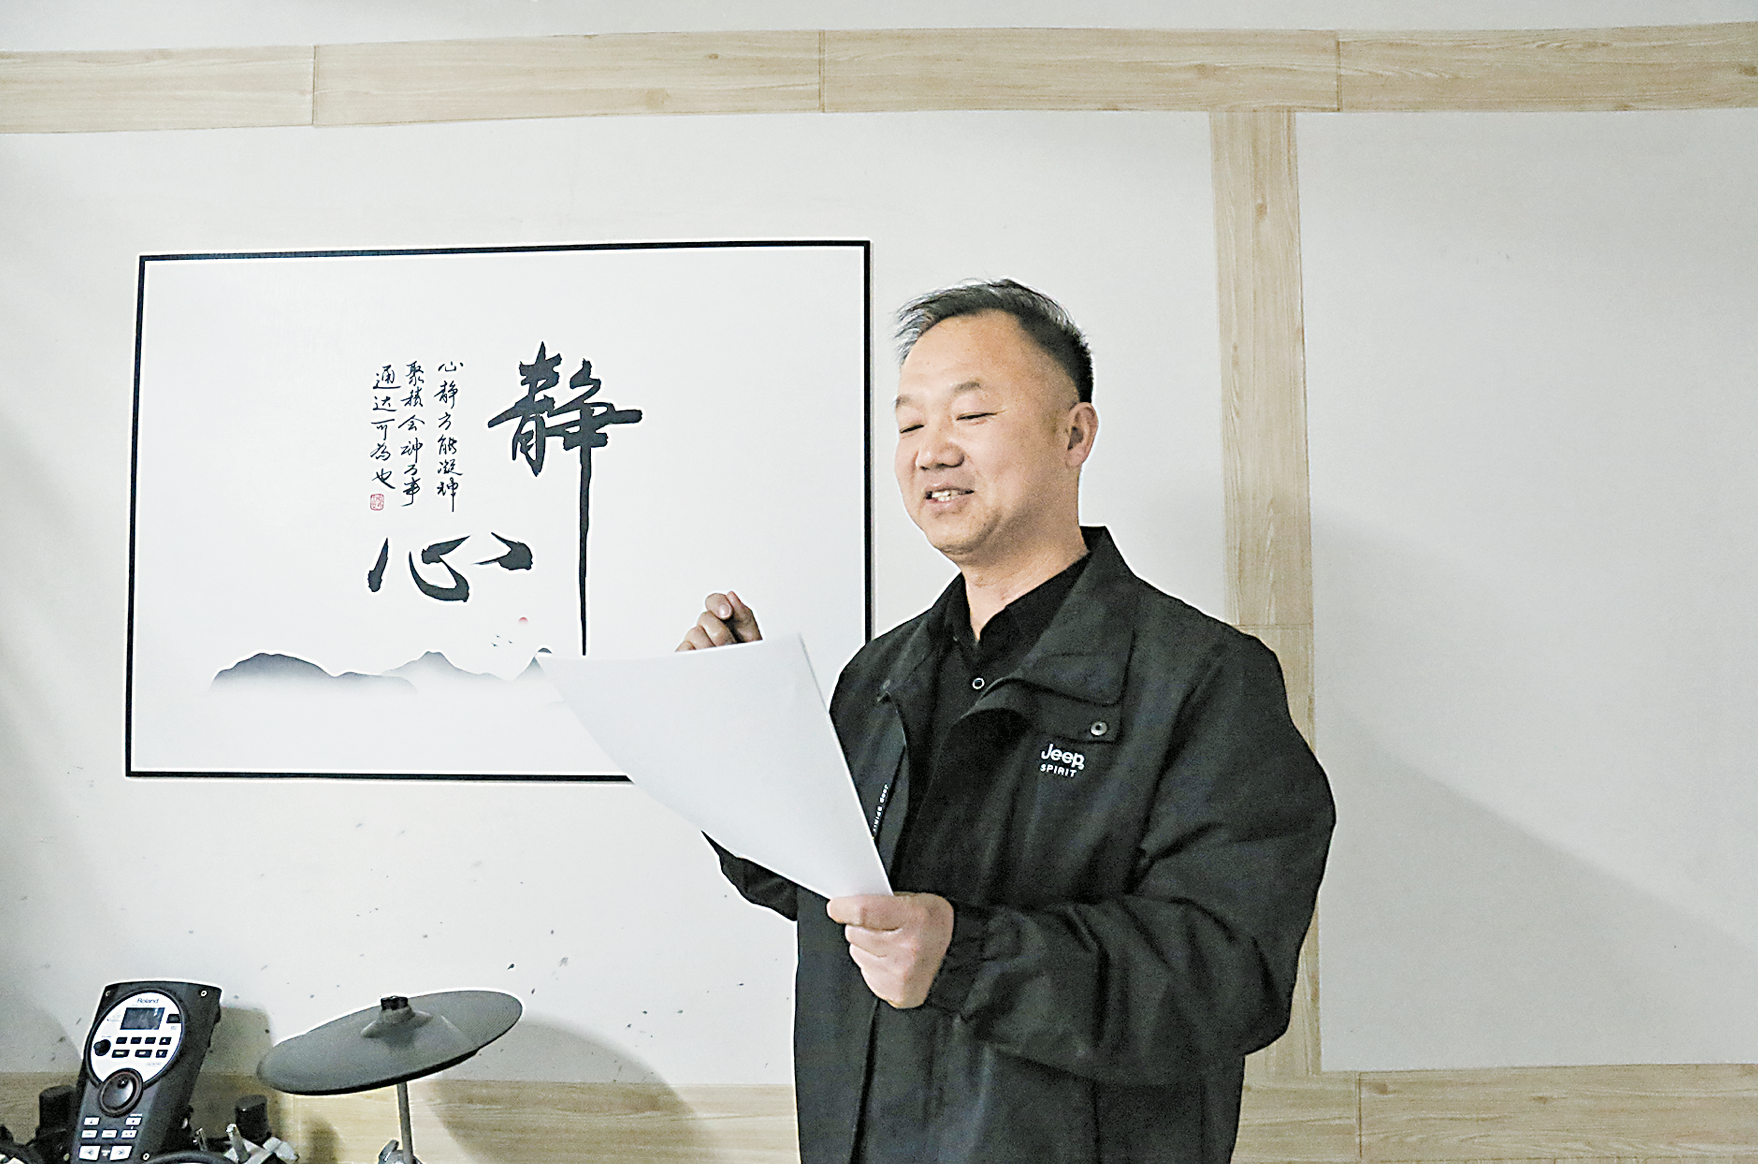 静心
心静方能凝神
聚精会神万事
通达可为也
Jeep
SPIRIT
Jeep SPIRIT
Roland